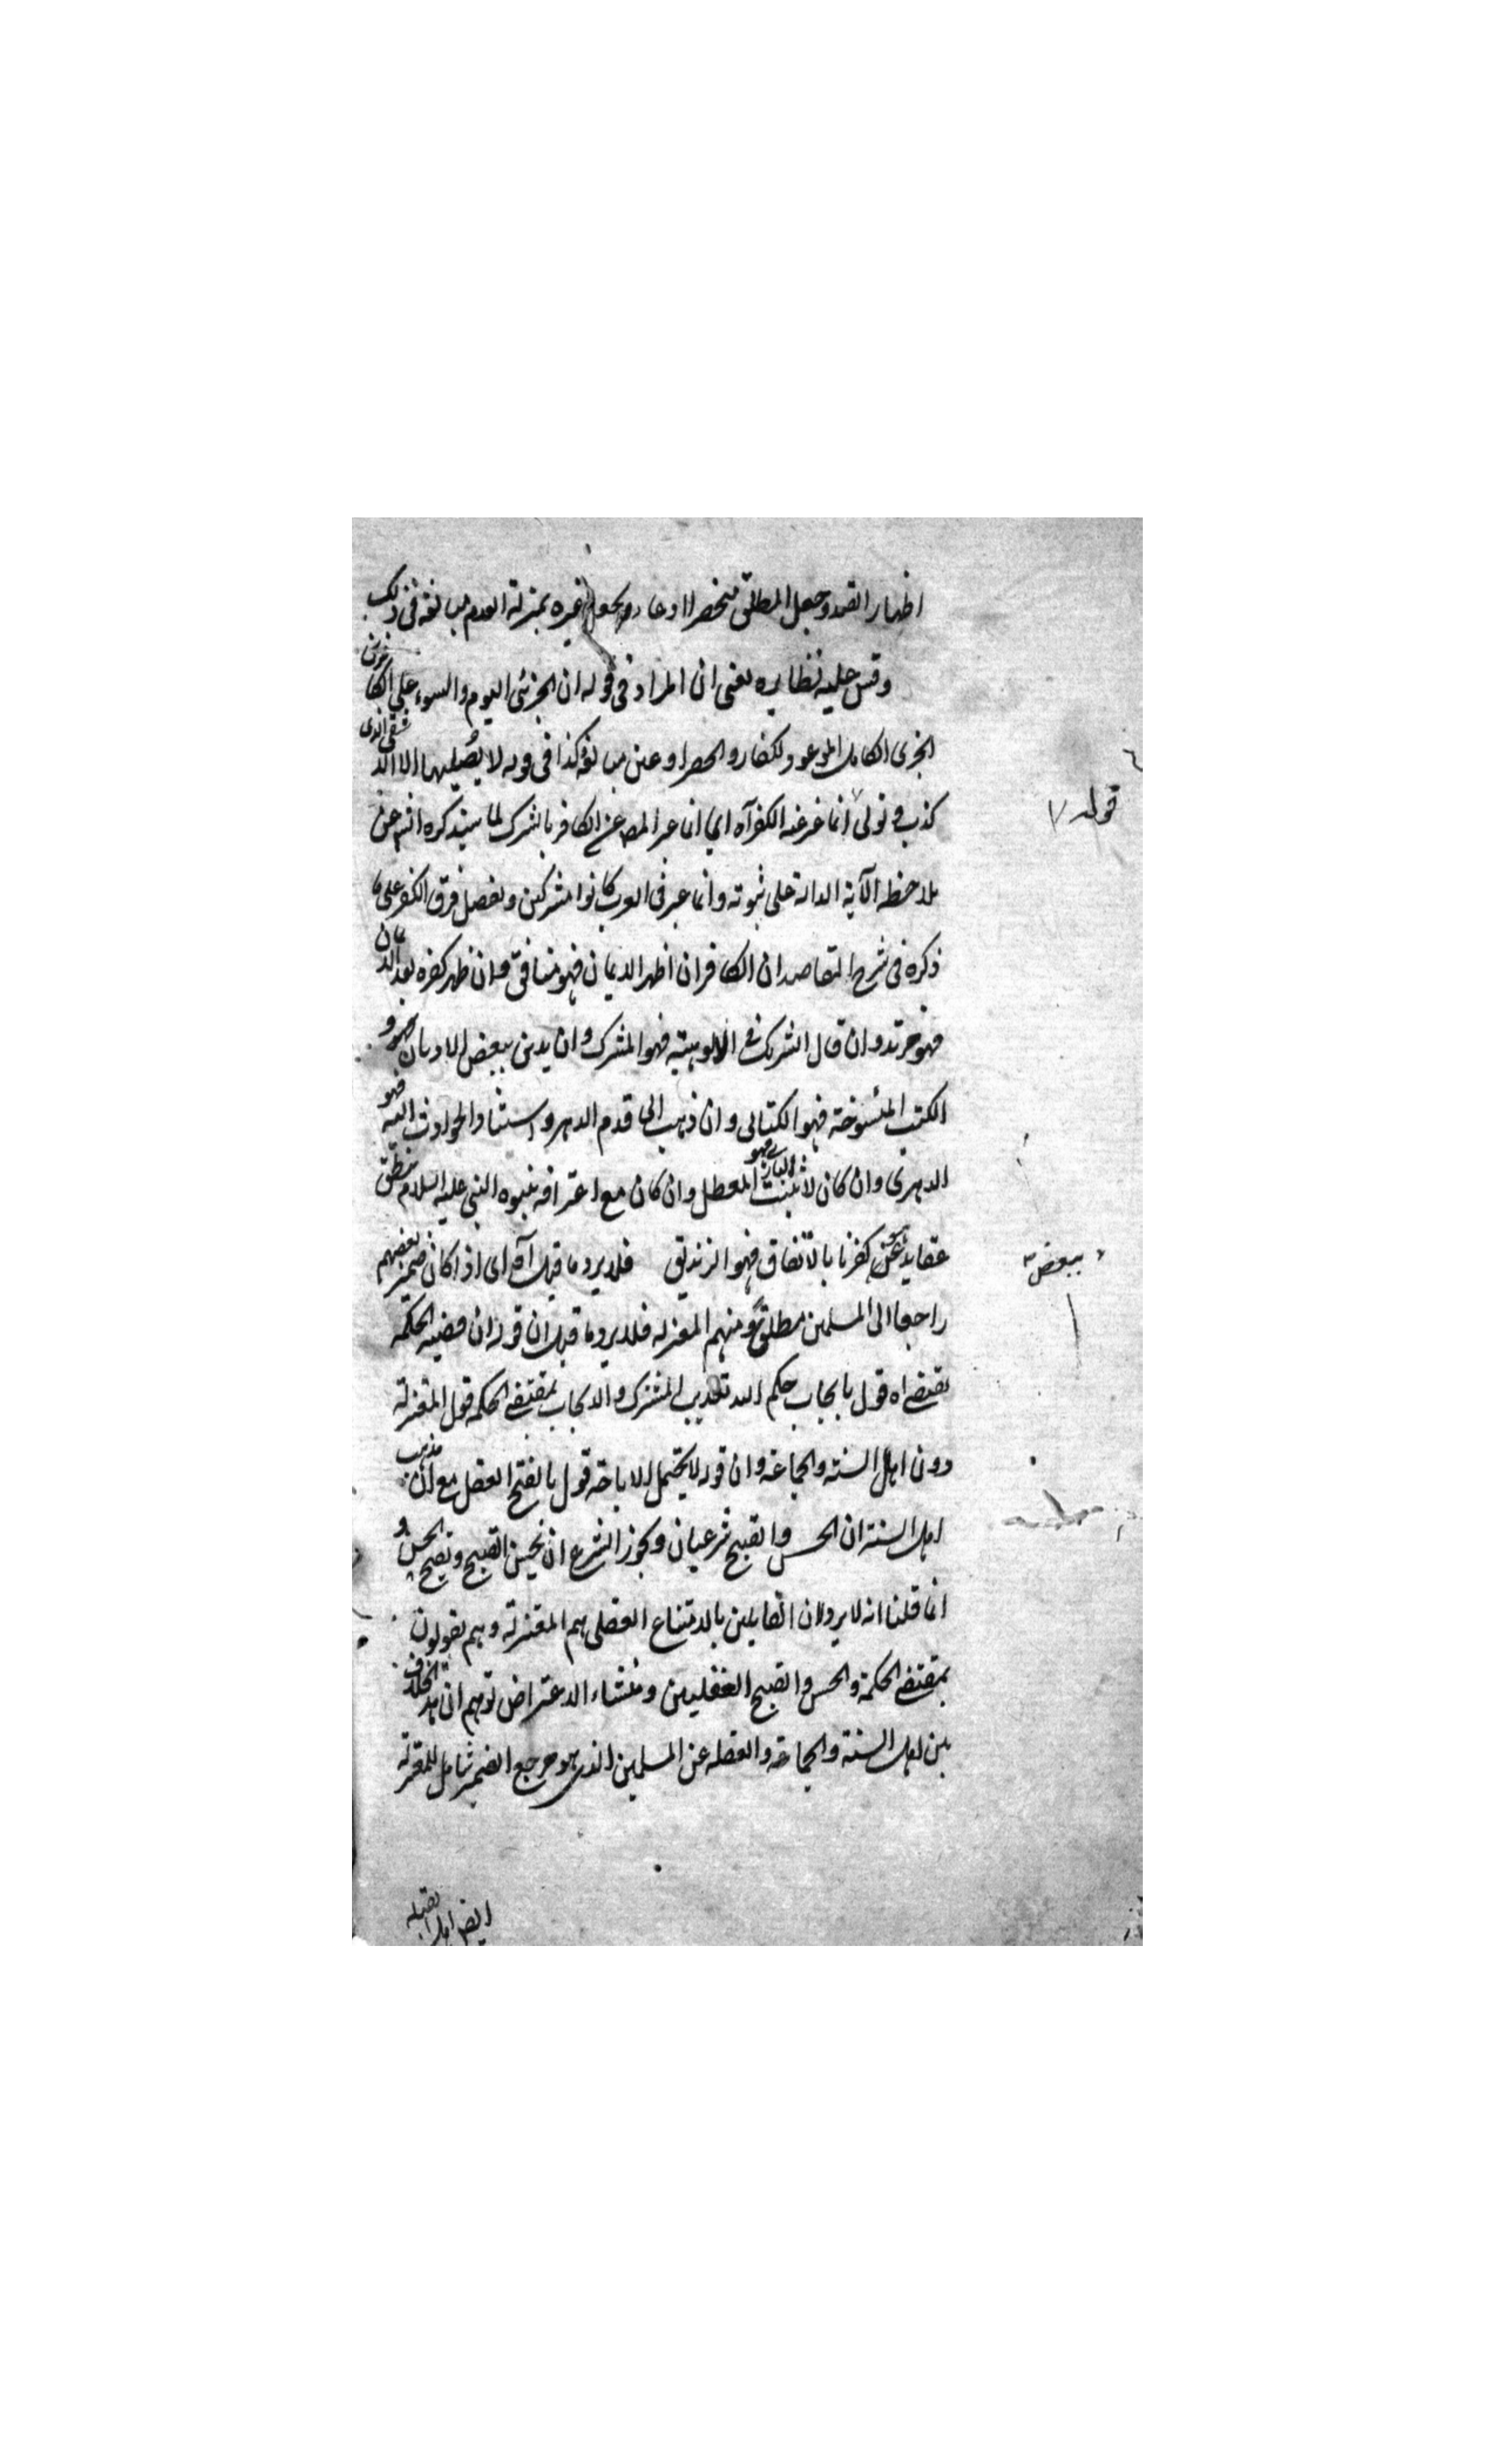 اظهار القيد وجعل المطلق منحصرا ادعاء ويجعل غيره بمنزلة العدم مبالغة فى ذلك
وقس عليه نظايره يعنى ان المراد فى قوله ان الخزى اليوم والسوء على الكافرين
الخزى الكامل الموعود لكفار والحصر ادعى مبالغة وكذا فى قوله لا يصليها الا الاشقى الذى
كذب وتولى انما عبر عنه الكفر آه اي انما عبر المص عن الكافر بالشرك لما سيذكره انه عن
قوله
ملاحظه الآية الدالة على ثبوته وانما عبر فى العرب كانوا مشركين وتفصيل فرق الكفر على ما
ذكره فى شرح المقاصد ان الكافر ان اظهر الايمان فهو منافق وان ظهر كفره بعد الايمان
فهو مرتد وان قال الشريك فى الالوهيته فهو المشرك وان يدين ببعض الاديان و
الكتب المنسوخة فهو الكتابى وان ذهب الى قدم الدهر واستناد الحوادث اليه فهو
الدهرى وان كان لا يثبت البارى فهو المعطل وان كان مع اعترافه بنبوه النبى عليه السلام يبطن
ببعض
عقايد هى كفرنا بالاتفاق فهو الزنديق فلا يرد ما قيل آه اى اذا كان ضمير بعضهم
راجعا الى المسلمين مطلقا ومنهم المعتزله فلا يرد ما قيل ان قوله ان قضيه الحكمه
تقتضى اه قول بايجاب حكم الله تعذيب المشرك والايجاب بمقتضى الحكمه قول المعتزلة
دون اهل السنه والجماعه وان قوله لا يحتمل الاباحة قول بالقبح العقل مع ان مذهب
اهل السنة ان الحسن والقبح شرعيان ويجوز الشرع ان يحسن القبيح ويقبح الحسن و
انما قلنا انه لا يرد لان القايلين بالامتناع العقلى هم المعتزلة وهم يقولون
بمقتضى الحكمة والحسن والقبح العقليين ومنشاء الاعتراض توهم ان هذا الخلاف
بين اهل السنة والجماعة والغفله عن المسلمين الذى هو مرجع الضمير شامل للمعتزلة
ايض اهل القبله